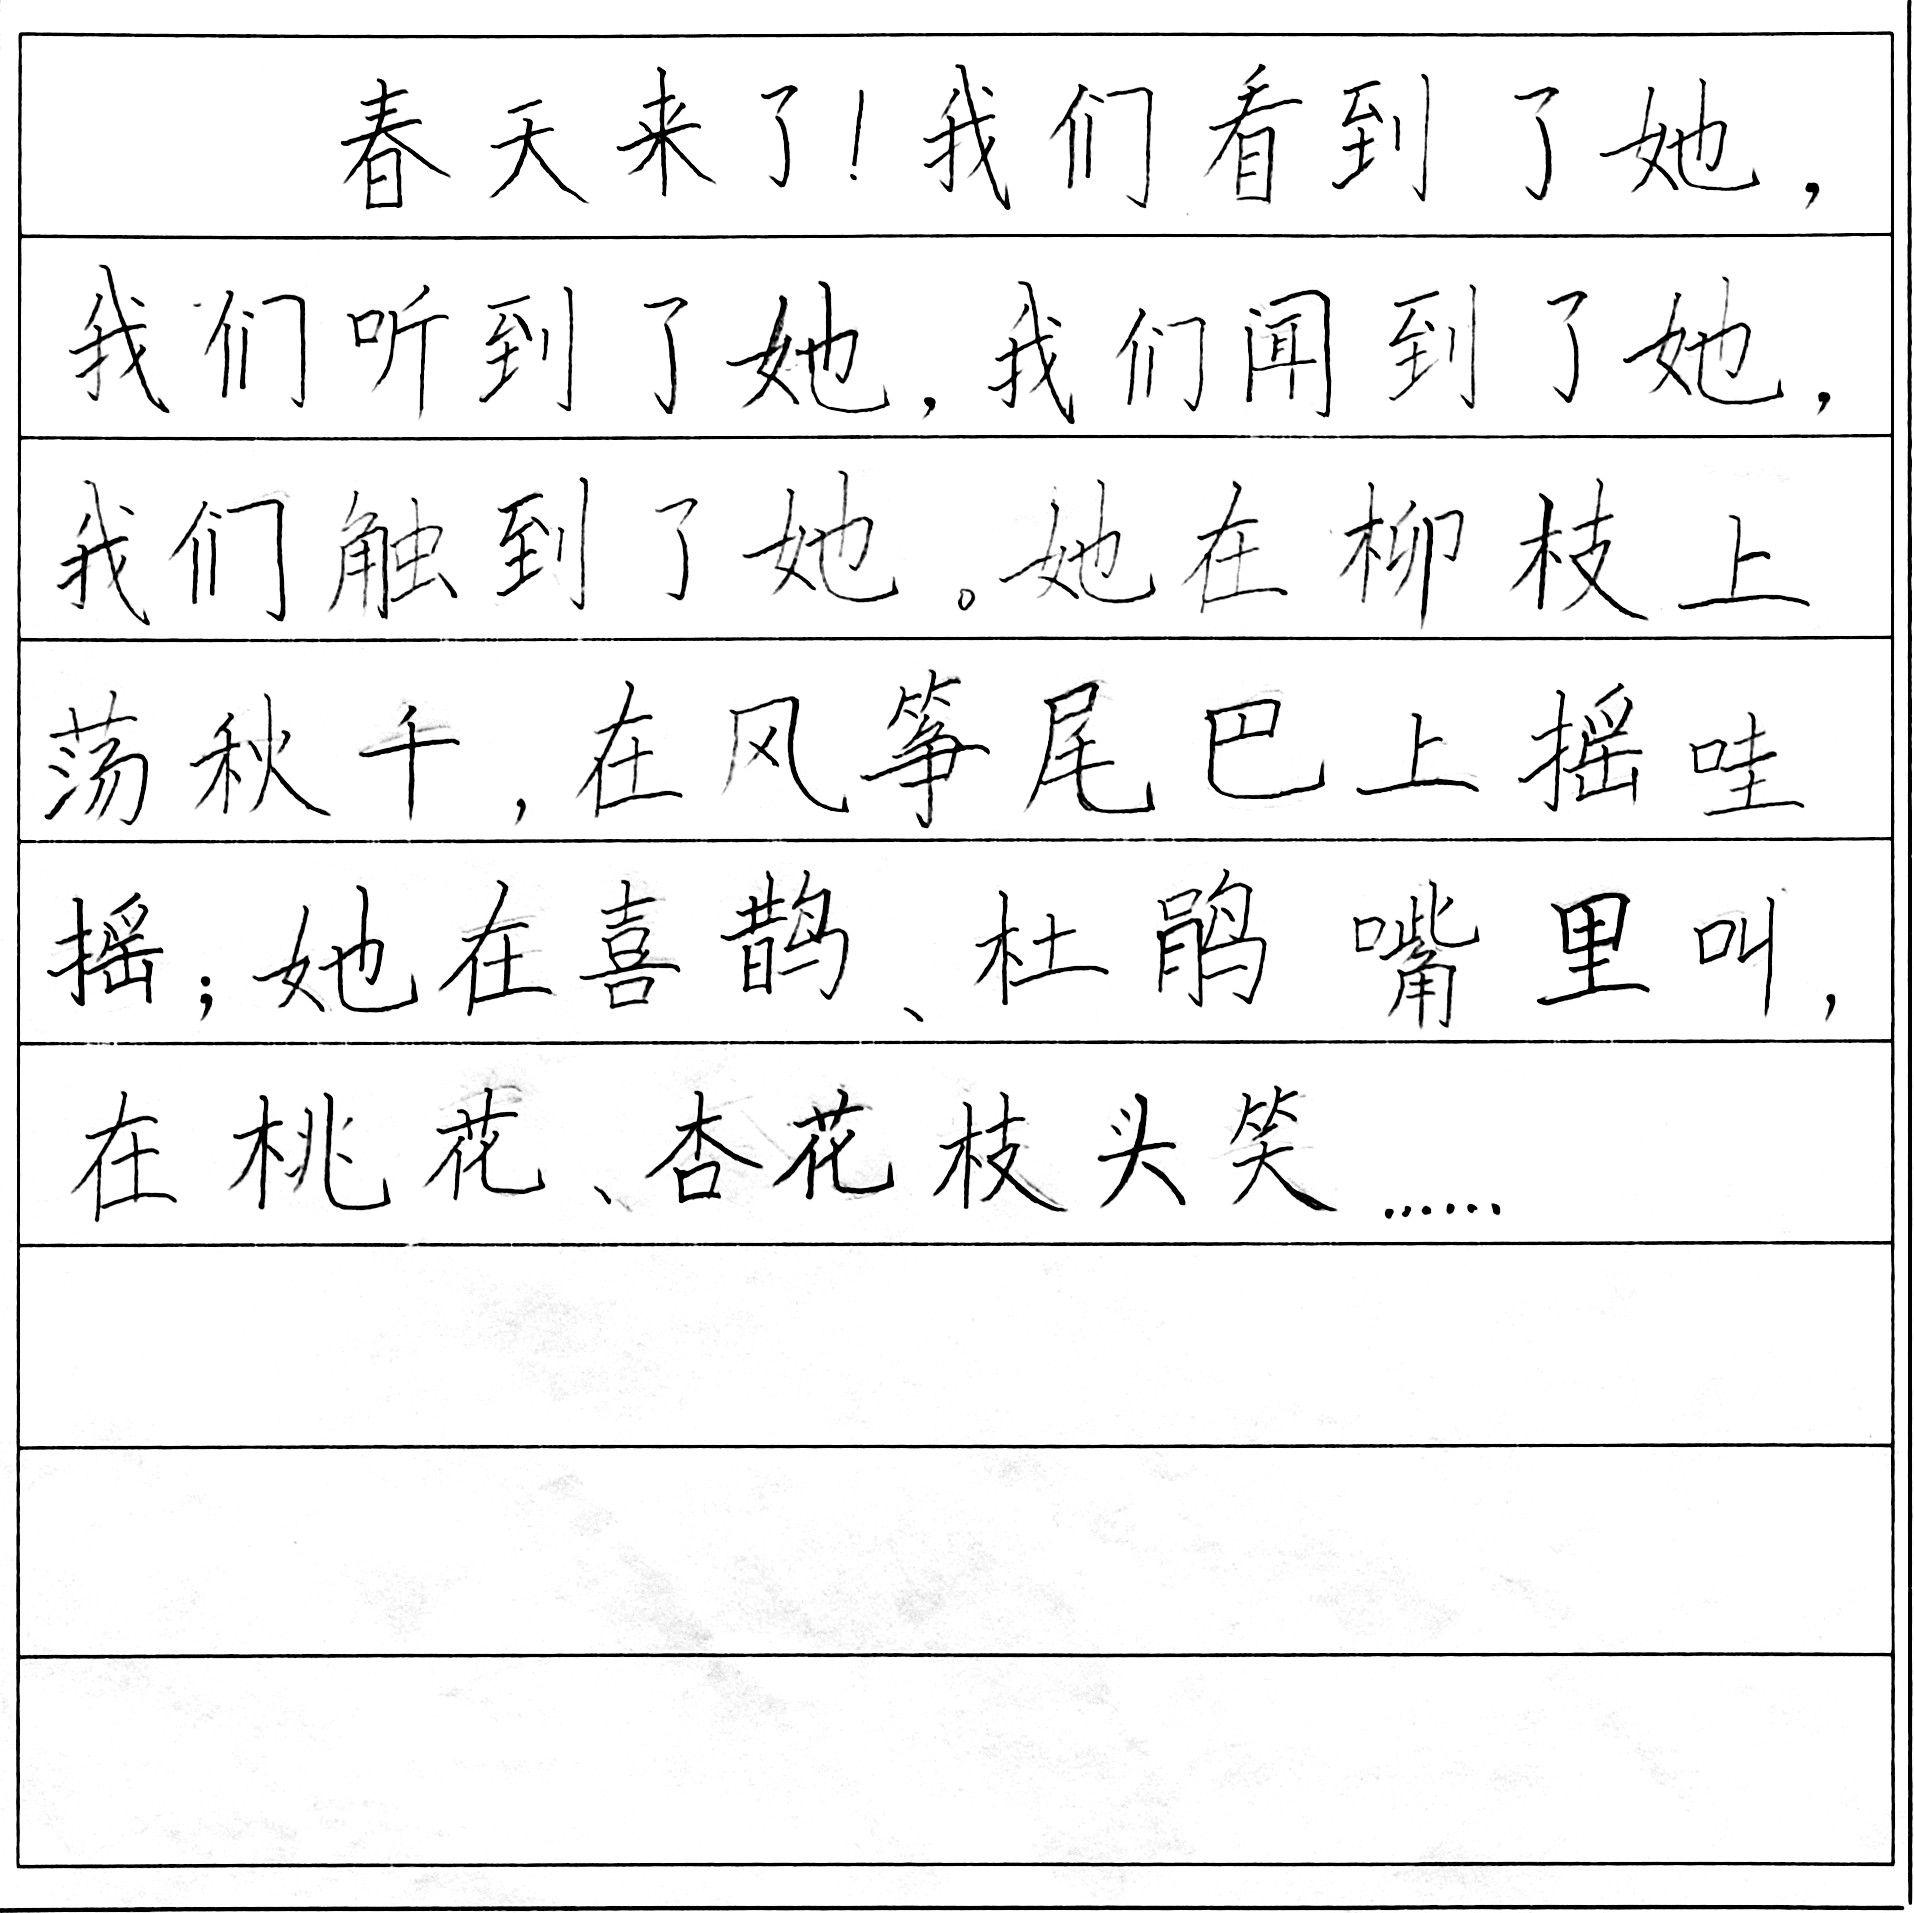 春天来了！我们看到了她，
我们听到了她，我们闻到了她，
我们触到了她。她在柳枝上
荡秋千，在风筝尾巴上摇哇
摇；她在喜鹊、杜鹃嘴里叫，
在桃花、杏花枝头笑……